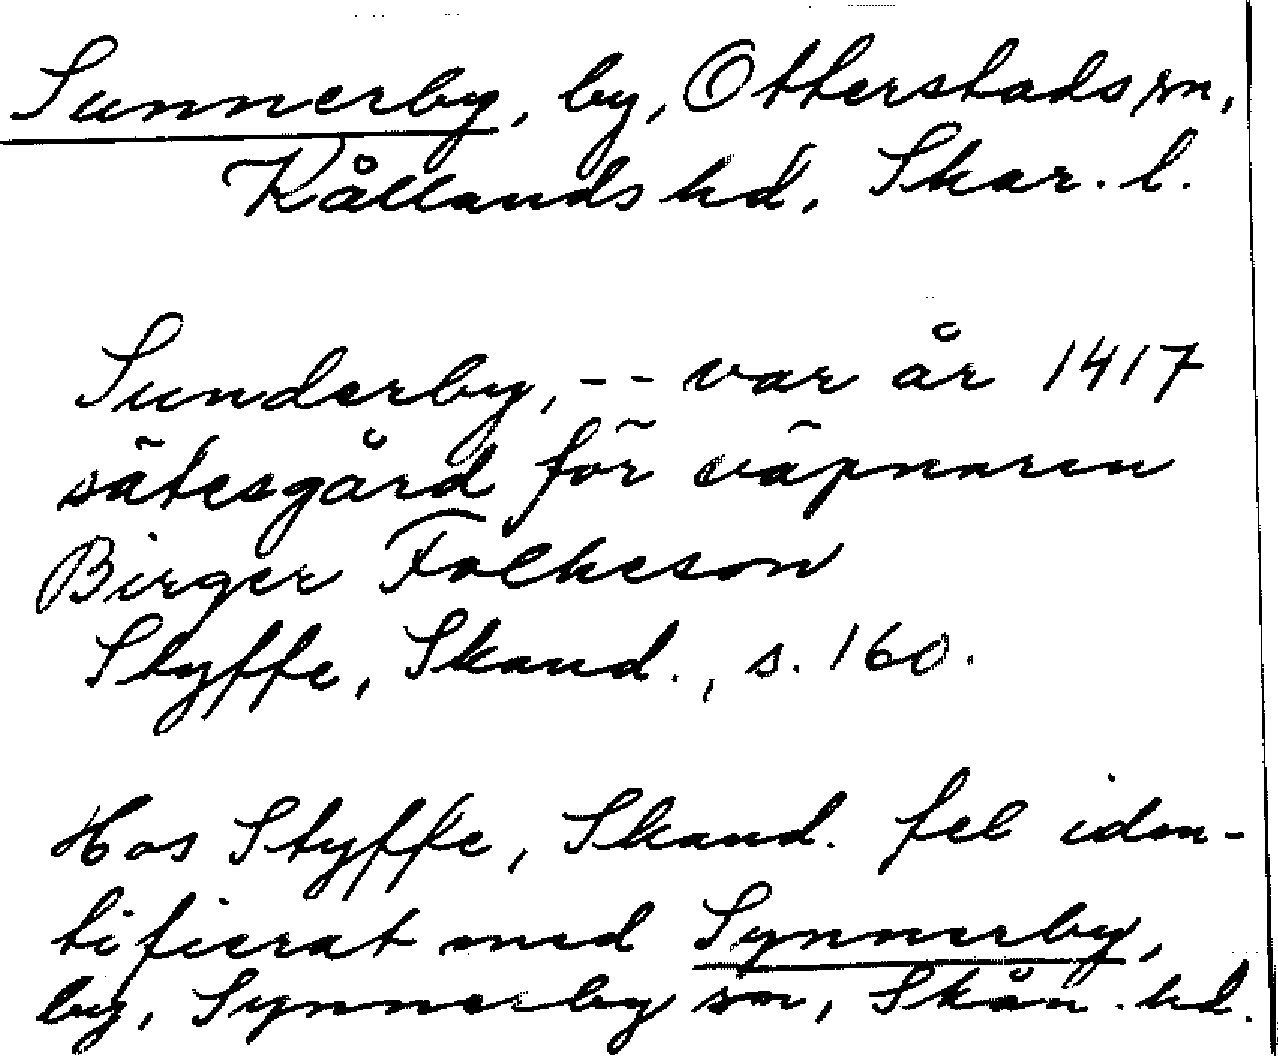 Sunnerby, by, Otterstads sn,
Kållands hd, Skar. l.
Sunderby, -- var år 1417
sätesgård för väpnaren
Birger Folkeson
Styffe, Skand., s. 160.
Hos Styffe, Skand. fel iden-
tifierat med Synnerby,
by, Synnerby sn, Skån. hd.